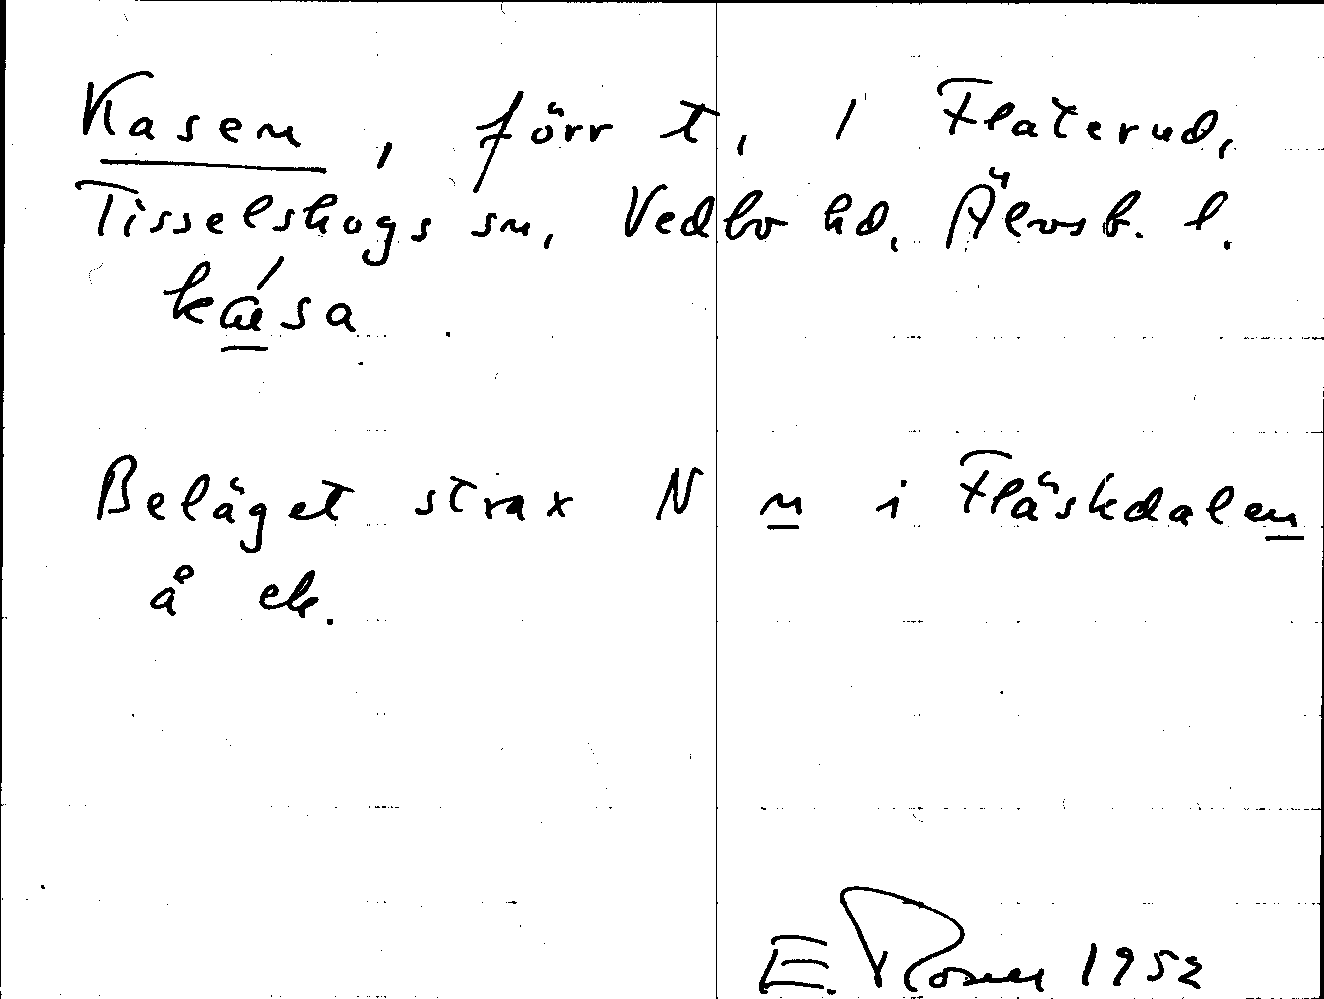 Kasen, förr t, / Flaterud,
Tisselskogs sn, Vedbo hd, Älvsb. l.
kása
Beläget strax N n i Fläskdalen
å ek.
E. Rosell 1952